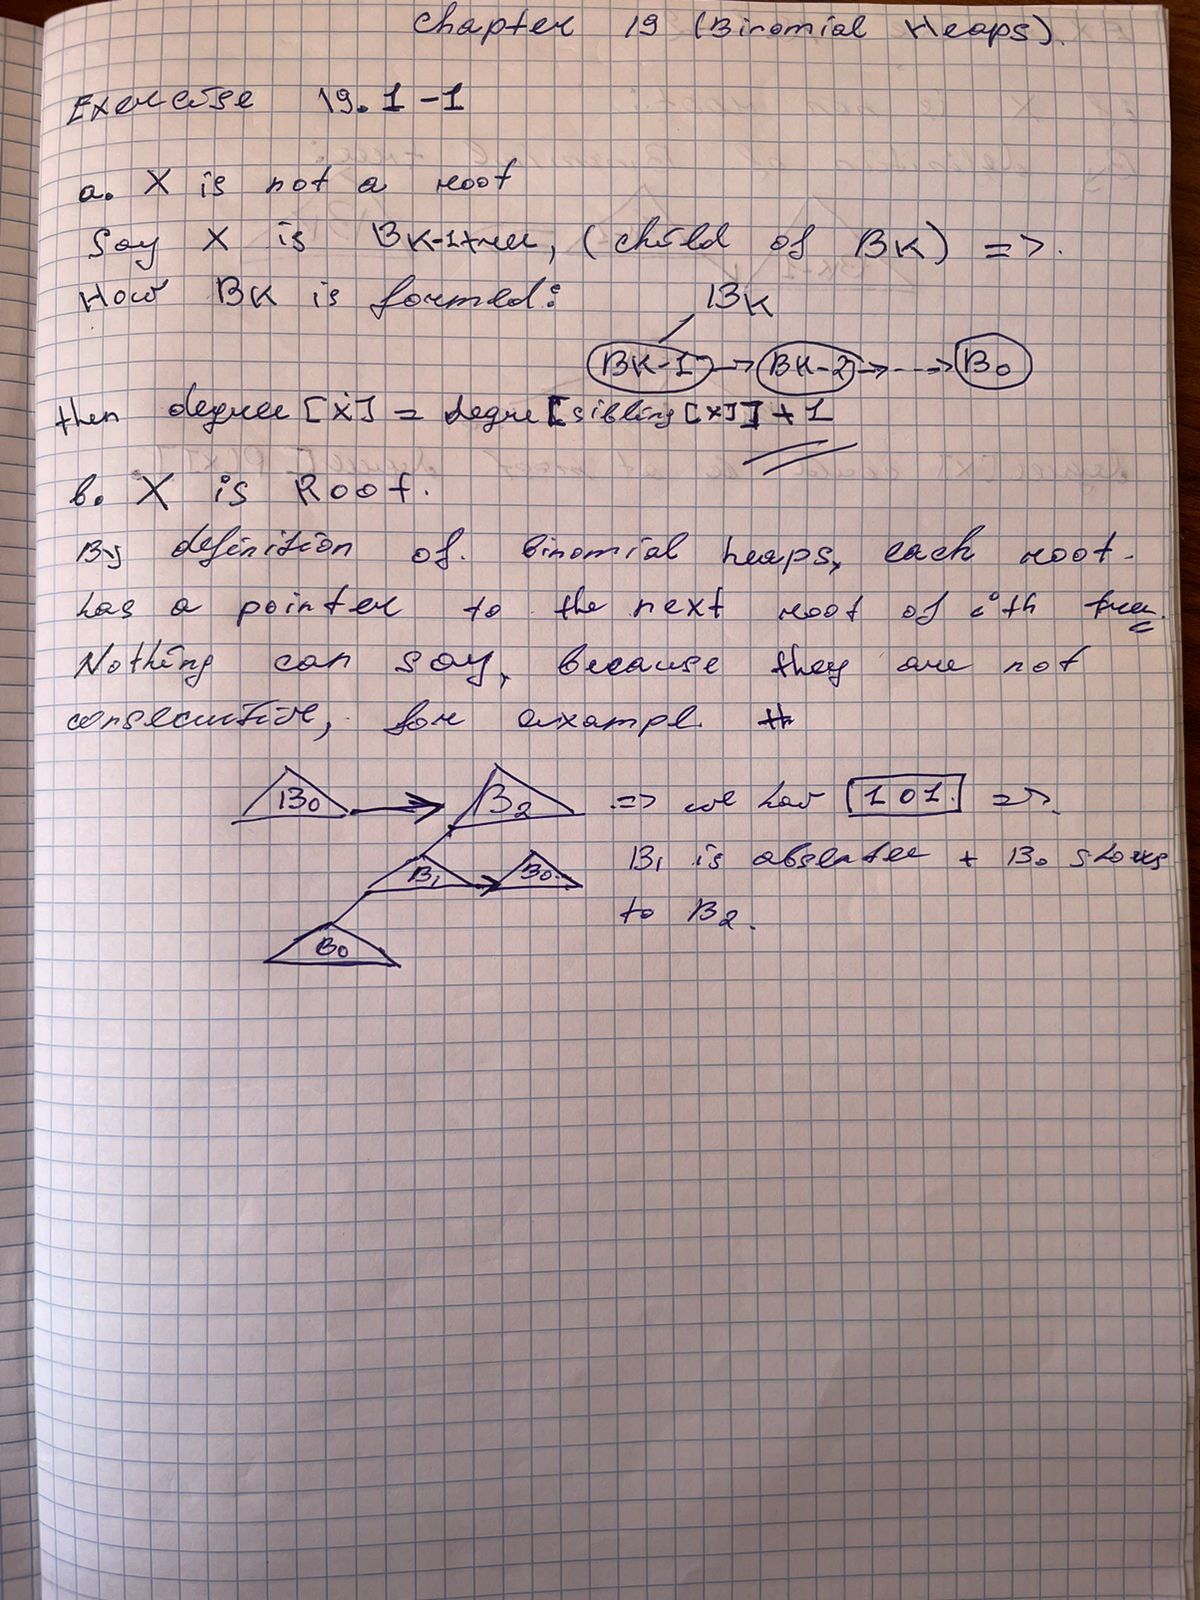 Chapter 19 (Binomial Heaps).
Exercise 19.1-1
a. X is not a root
Say X is BK-1 tree, (child of BK) =>.
How BK is formed:
BK
BK-1 -> BK-2 -> ---> B0
then degree [x] = degre[sibling[x]] + 1
b. X is Root.
By definition of binomial heaps, each root
has a pointer to the next root of i'th tree.
Nothing can say, because they are not
consecutive, for exampl
B0 -> B2 => we hav [101] =>.
B1 -> B0 B1 is absentee + B0 shows
B0 to B2.